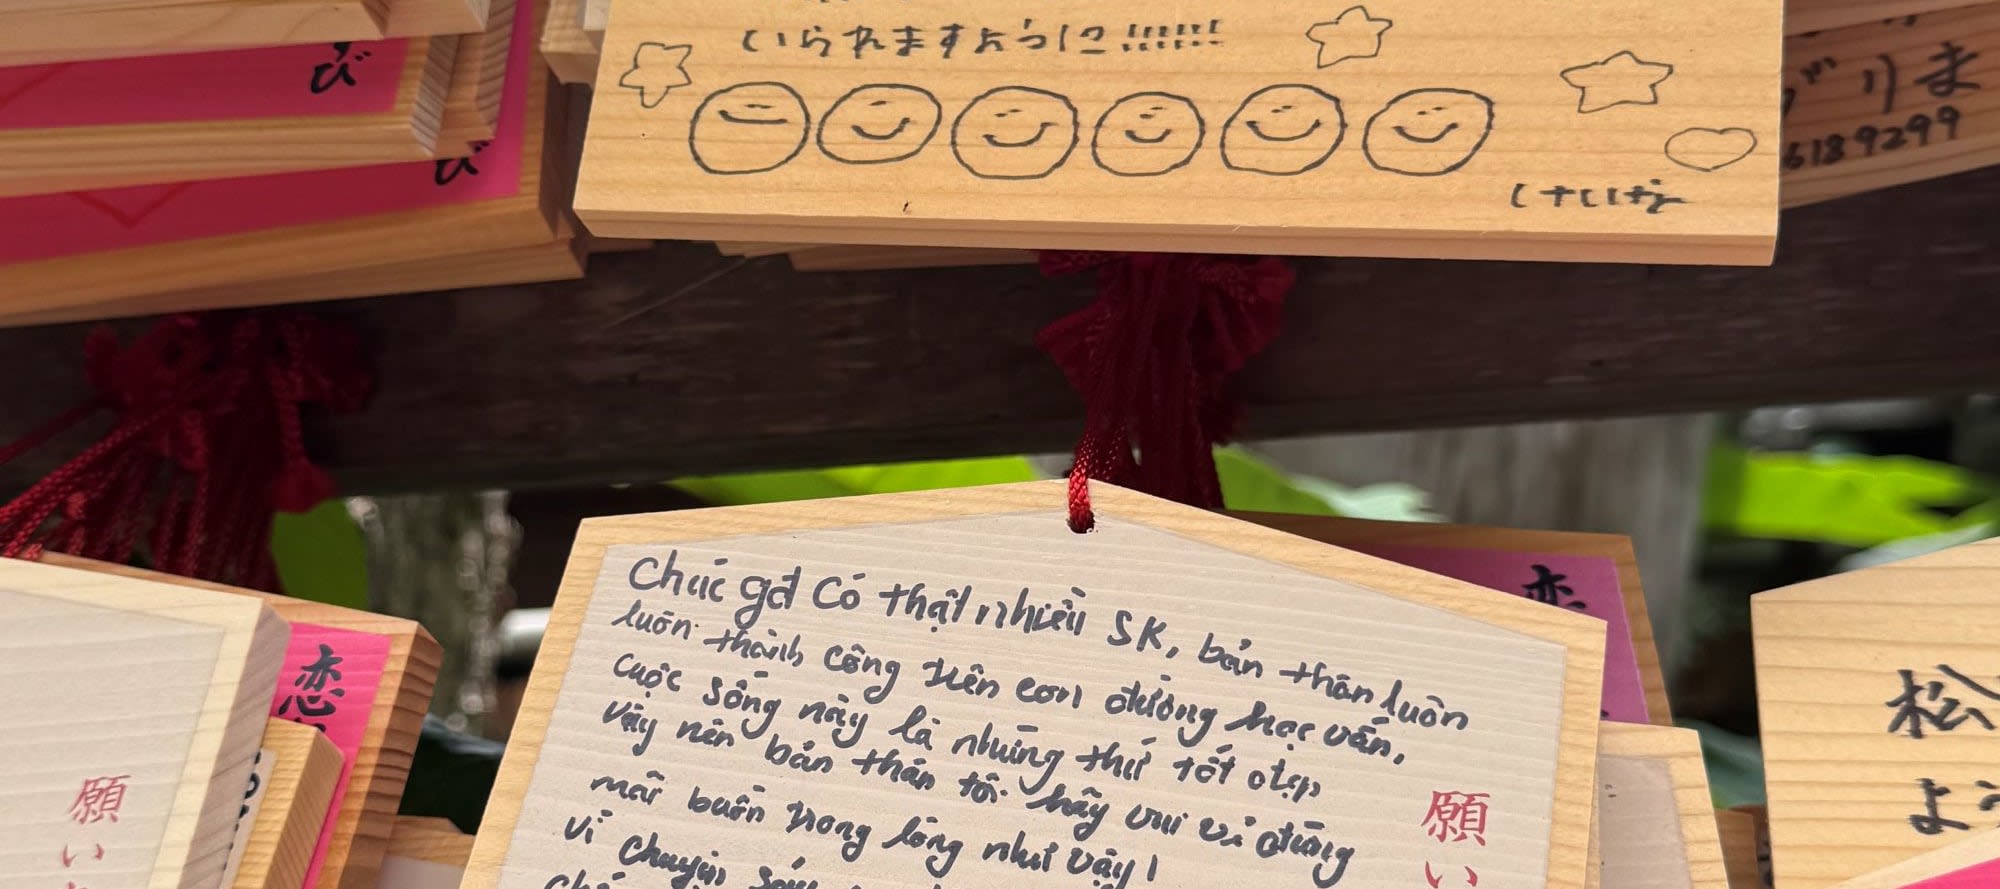 び
び
いられますように!!!!!!
けいな
りま
6189299
Chúc gđ có thật nhiều SK, bản thân luôn
luôn thành công trên con đường học vấn,
cuộc sống này là những thứ tốt đẹp
vậy nên bản thân tôi hãy vui vẻ đừng
mãi buồn trong lòng như vậy!
vì chuyện
恋
願い
恋
願い
松
よう